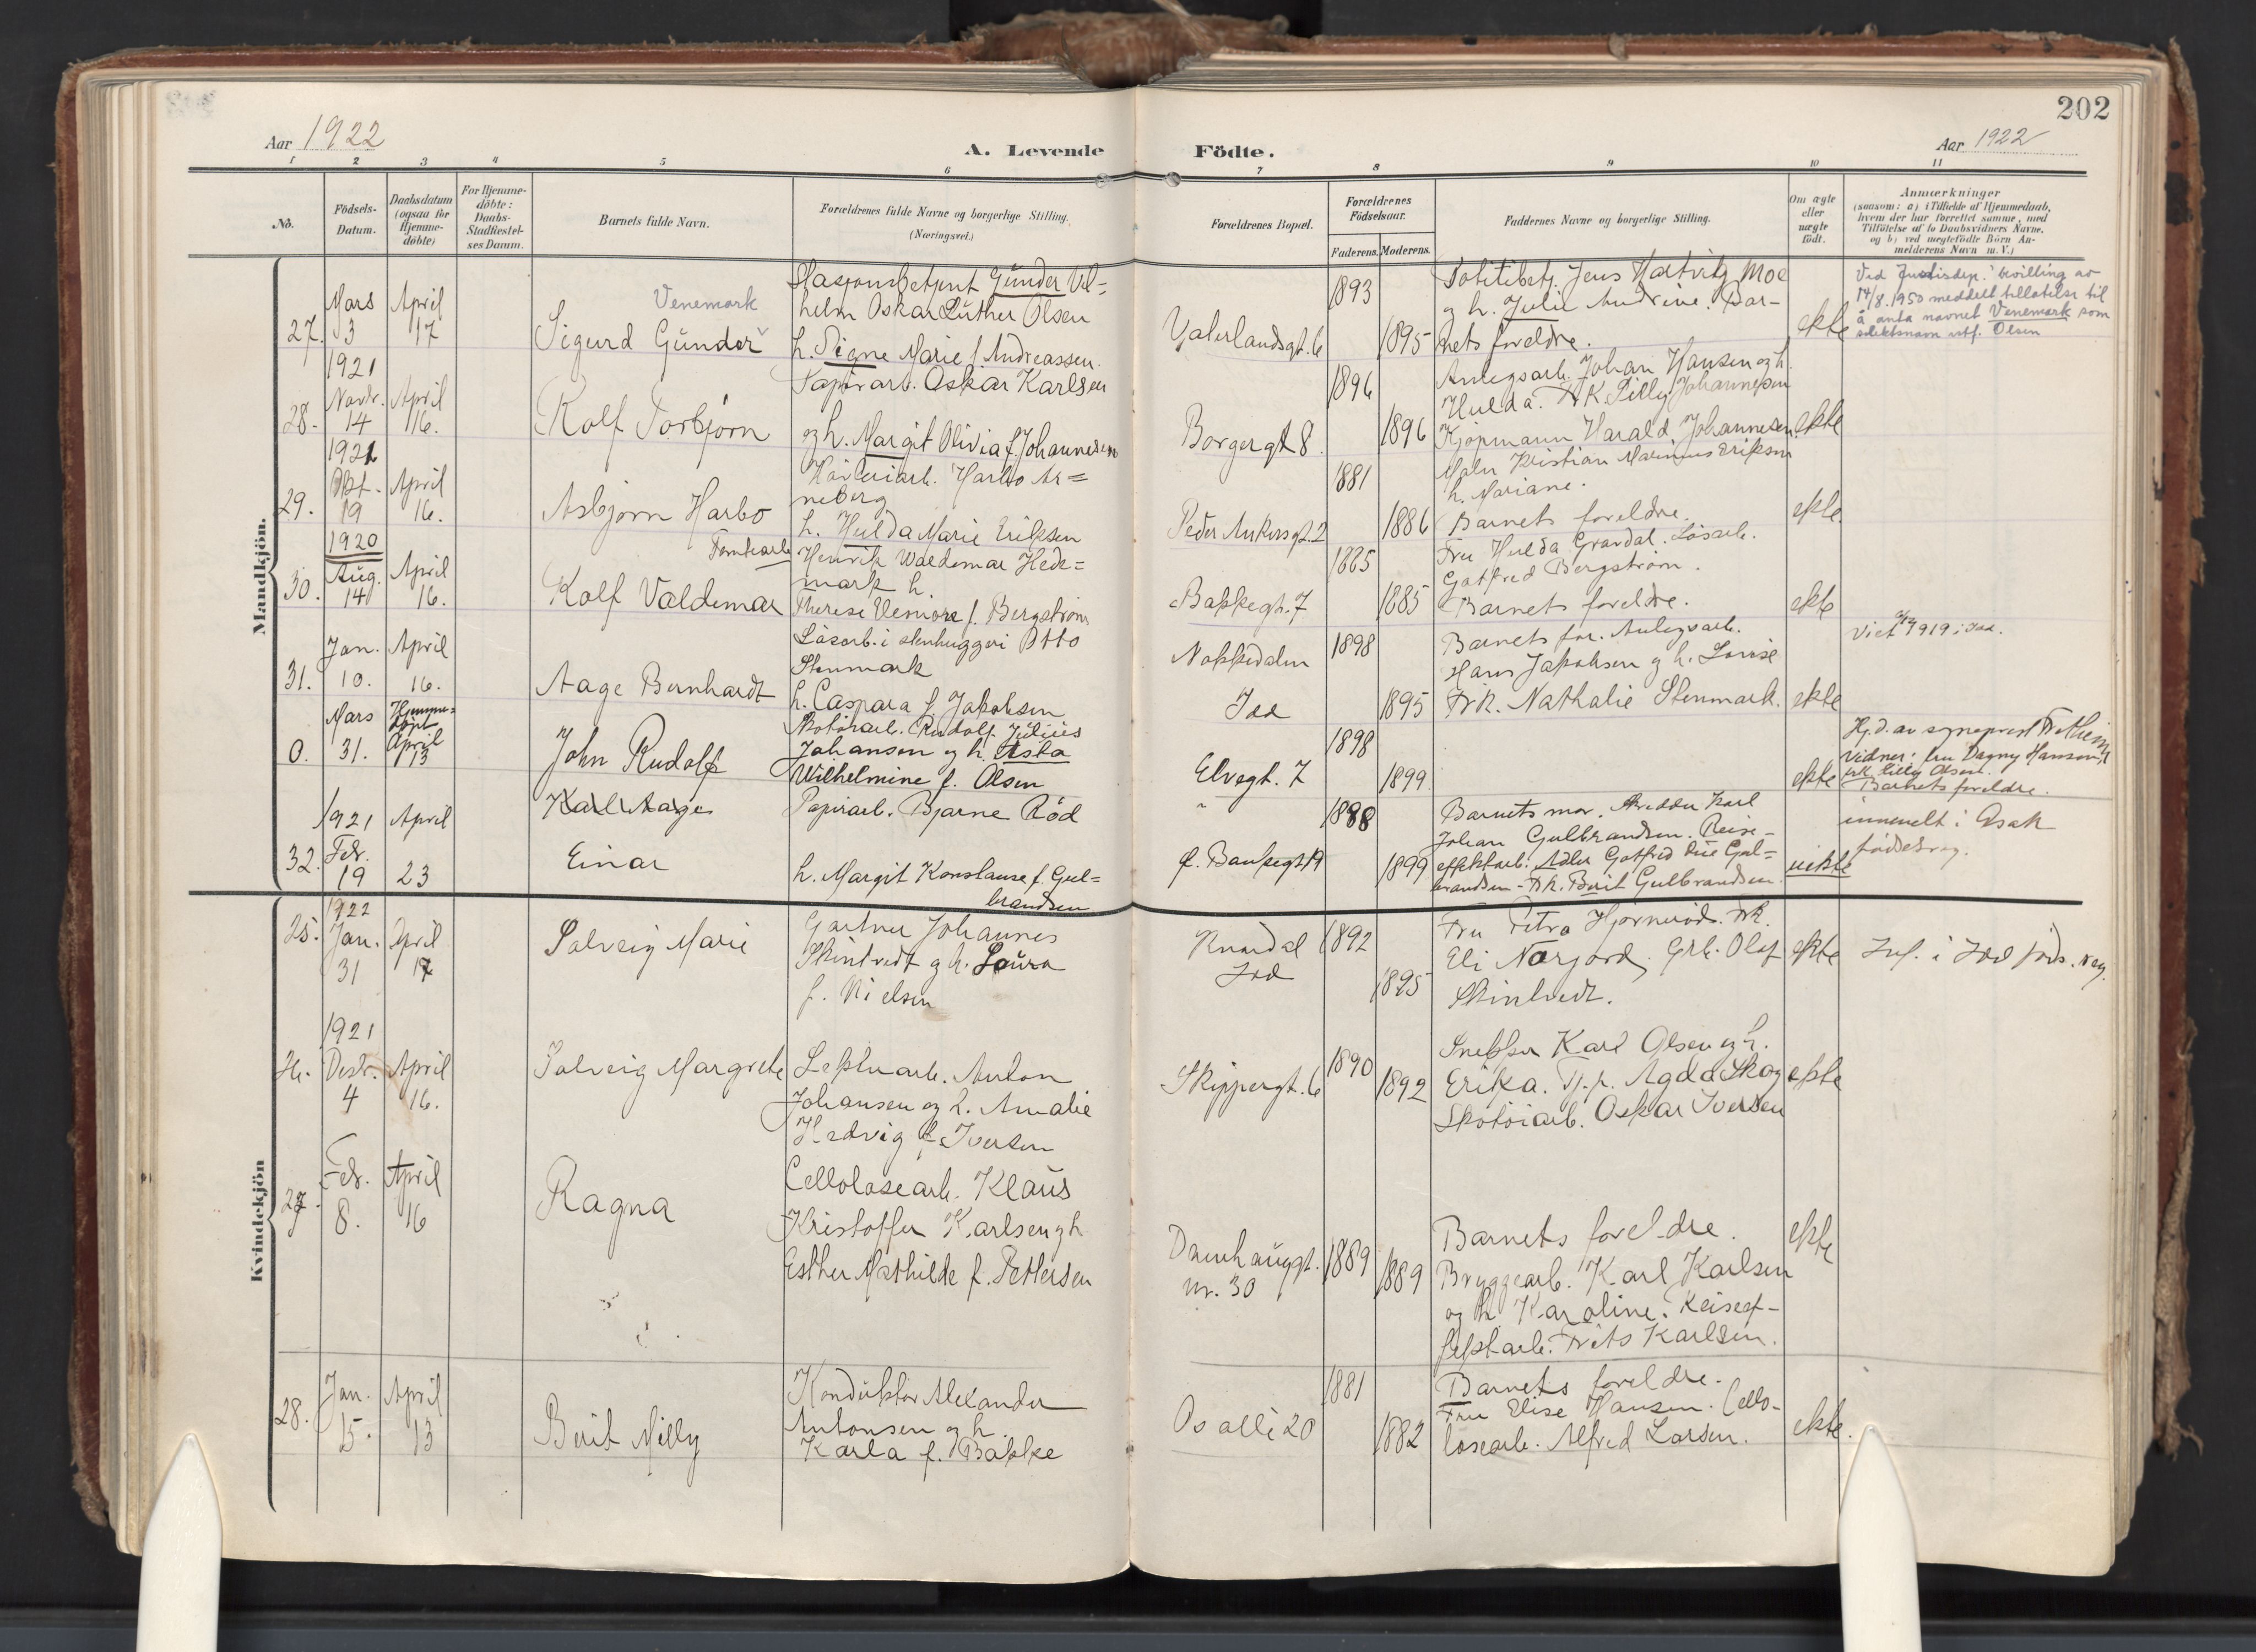 202
Aar 1922
A. Levende
Födte.
Aar 1922
1 2 3 4 5 6 7 8 9 10 11
No.
Födsels-
Datum.
Daabsdatum
(ogsaa for
Hjemme-
döbte)
For Hjemme-
döbte:
Daabs-
Stadfæstel-
ses Datum.
Barnets fulde Navn.
Forældrenes fulde Navne og borgerlige Stilling.
(Næringsvei.)
Forældrenes Bopæl.
Forældrenes
Födselsaar.
Faderens. Moderens.
Faddernes Navne og borgerlige Stilling.
Om ægte
eller
uægte
födt.
Anmærkninger
(saasom: a) i Tilfælde af Hjemmedaab,
hvem der har forrettet samme, med
Tilföielse af to Daabsvidners Navne,
og b) ved uegtefödte Börn An-
melderens Navn m. V.)
Mandkjön.
27.
Mars
3
April
17
Venemark
Sigurd Gunder
Stasjonsbetjent Gunder Vil=
helm Oskar Luther Olsen
h. Signe Marie f. Andreassen
Vaterlandsgt. 6
1893
1895
Politibetj. Jens Hartvig Moe
og h. Julie Andrine. Bar-
nets foreldre.
ekte
Ved Justisdep. bevilling av
14/8.1950 meddelt tillatelse til
å anta navnet Venemark som
slektsnavn istf. Olsen
28.
1921
Novbr.
14
April
16.
Rolf Torbjørn
Papirarb. Oskar Karlsen
og h. Margit Olivia f. Johannesen
Borgergt 8.
1896
1896
Anlegsarb. Johan Hansen og h.
Hulda. Frk Lilly Johannesen
Kjøpmann Harald Johannesen.
ekte
29.
1921
Okt.
19
April
16.
Asbjørn Harbo
Høvleriarb. Harbo Ar=
neberg
h. Hulda Marie Eriksen
Peder Ankersgt. 2
1881
1886
Maler Kristian Marinius Eriksen
h. Mariane.
Barnets foreldre.
ekte.
30.
1920
Aug.
14
April
16.
Rolf Valdemar
Tomtearb
Henrik Waldemar Hede=
mark h.
Therese f. Bergstrøm
Bakkegt. 7
1885
1885
Fru Hulda Grøvdal. Løsarb.
Gotfred Bergstrøm.
Barnets foreldre.
ekte
31.
Jan.
10.
April
16.
Aage Bernhardt
Løsarb. i stenhuggeri Otto
Stenmark
h. Caspara f. Jakobsen
Nokkedalen
Idd
1898
1895
Barnets for. Anlegsarb.
Hans Jakobsen og h. Lovise
Frk. Nathalie Stenmark.
ekte
Viet 1919 i Idd.
0.
Mars
31.
Hjemme=
døpt
April
13
John Rudolf
Skotøiarb. Rudolf Julius
Johansen og h. Asta
Wilhelmine f. Olsen
Elvegt. 7
1898
1899
ekte
Hj.d. av sogneprest
Vidner: fru Dagny Hansen,
frk. Lilly Olsen.
Barnets foreldre.
32.
1921
Febr.
19
April
23
Karl Aage
Einar
Papirarb. Bjarne Röd
h. Margit Konstanse f. Gul=
brandsen
1888
1899
Barnets mor. Skredder Karl
Johan Gulbrandsen. Reise-
effektarb. Adler Gotfred Gul=
brandsen - Frk. Berit Gulbrandsen
uekte
innmeldt i Asak
fødselsreg.
Kvindekjön
25.
1922
Jan.
31
April
17
Solveig Marie
Gartner Johannes
Skintvedt og h. Laura
f. Nielsen
Idd
1892
1895
Fru Petra Hjørnerød. Frk.
Eli Norgård. Grb. Olaf
Skintvedt.
ekte
Inf. i Idd føds. reg.
26.
1921
Desbr.
4
April
16.
Solveig Margrete
Lekterarb. Anton
Johansen og h. Amalie
Hedvig f. Iversen
Skippergt. 6
1890
1892
Snekker Karl Olsen og h.
Erika. Tj.p. Agda Skog
Skotøiarb. Oskar Iversen
ekte
27.
Febr.
8.
April
16
Ragna
Cellolosearb. Klaus
Kristoffer Karlsen og h
Esther Mathilde f. Pettersen
Damhauggt.
nr. 30
1889
1889
Barnets foreldre.
Bryggearb. Karl Karlsen
og h Karoline. Reiseef-
fektarb. Frits Karlsen.
ekte
28.
Jan.
15.
April
13
Berit Milly
Konduktør Alexander
Antonsen og h.
Karla f. Bakke
Os alle 20
1881
1882
Barnets foreldre.
Fru Elise Hansen. Cello-
losearb. Alfred Larsen.
ekte.